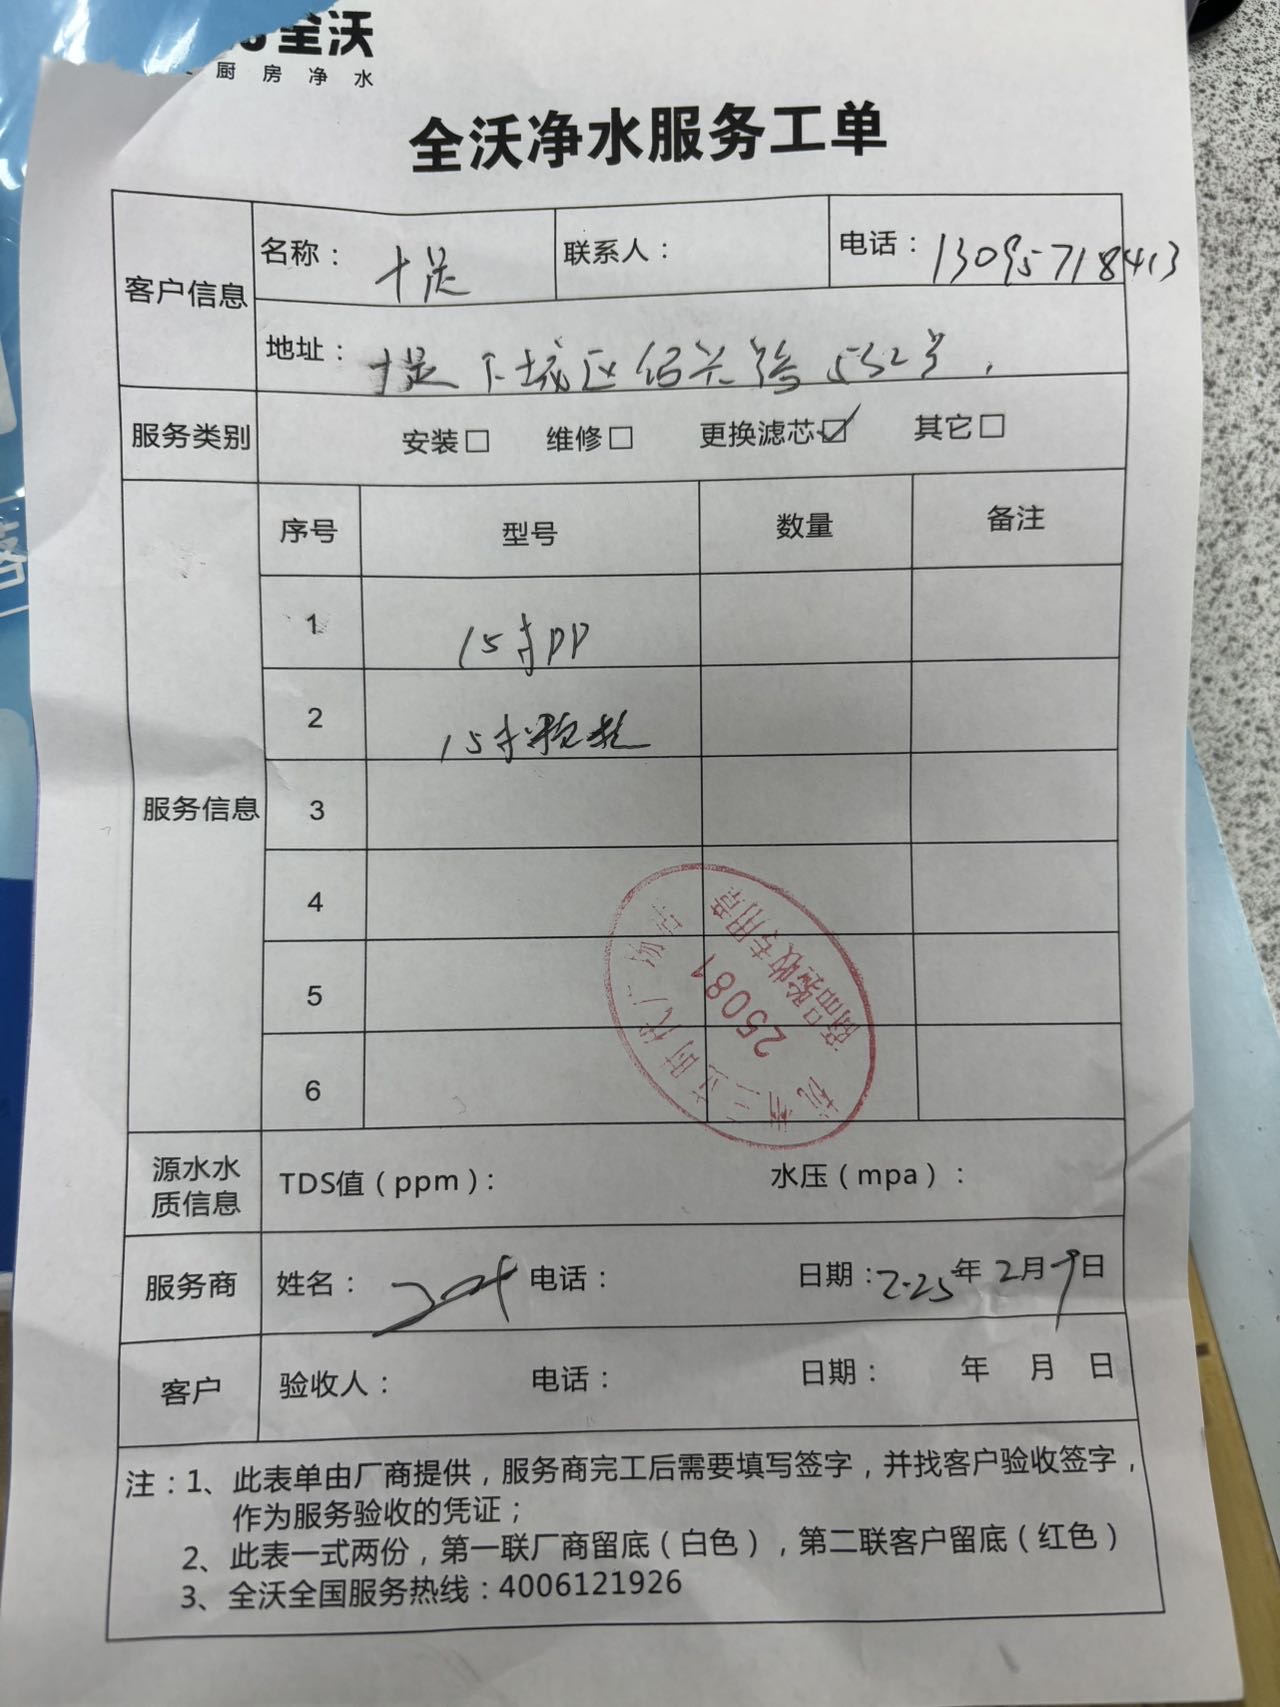 全沃
厨房净水
全沃净水服务工单
客户信息
名称：
联系人：
电话：13095718413
地址：下城区 路532号
服务类别
安装□ 维修□ 更换滤芯☑ 其它□
服务信息
序号 型号 数量 备注
1 15寸PP
2 15寸颗粒
3
4
5
6
杭州三立时代广场店
250081
商品验收专用章
源水水质信息
TDS值（ppm）： 水压（mpa）：
服务商
姓名： 电话： 日期：2025年2月9日
客户
验收人： 电话： 日期： 年 月 日
注：1、此表单由厂商提供，服务商完工后需要填写签字，并找客户验收签字，
作为服务验收的凭证；
2、此表一式两份，第一联厂商留底（白色），第二联客户留底（红色）
3、全沃全国服务热线：4006121926